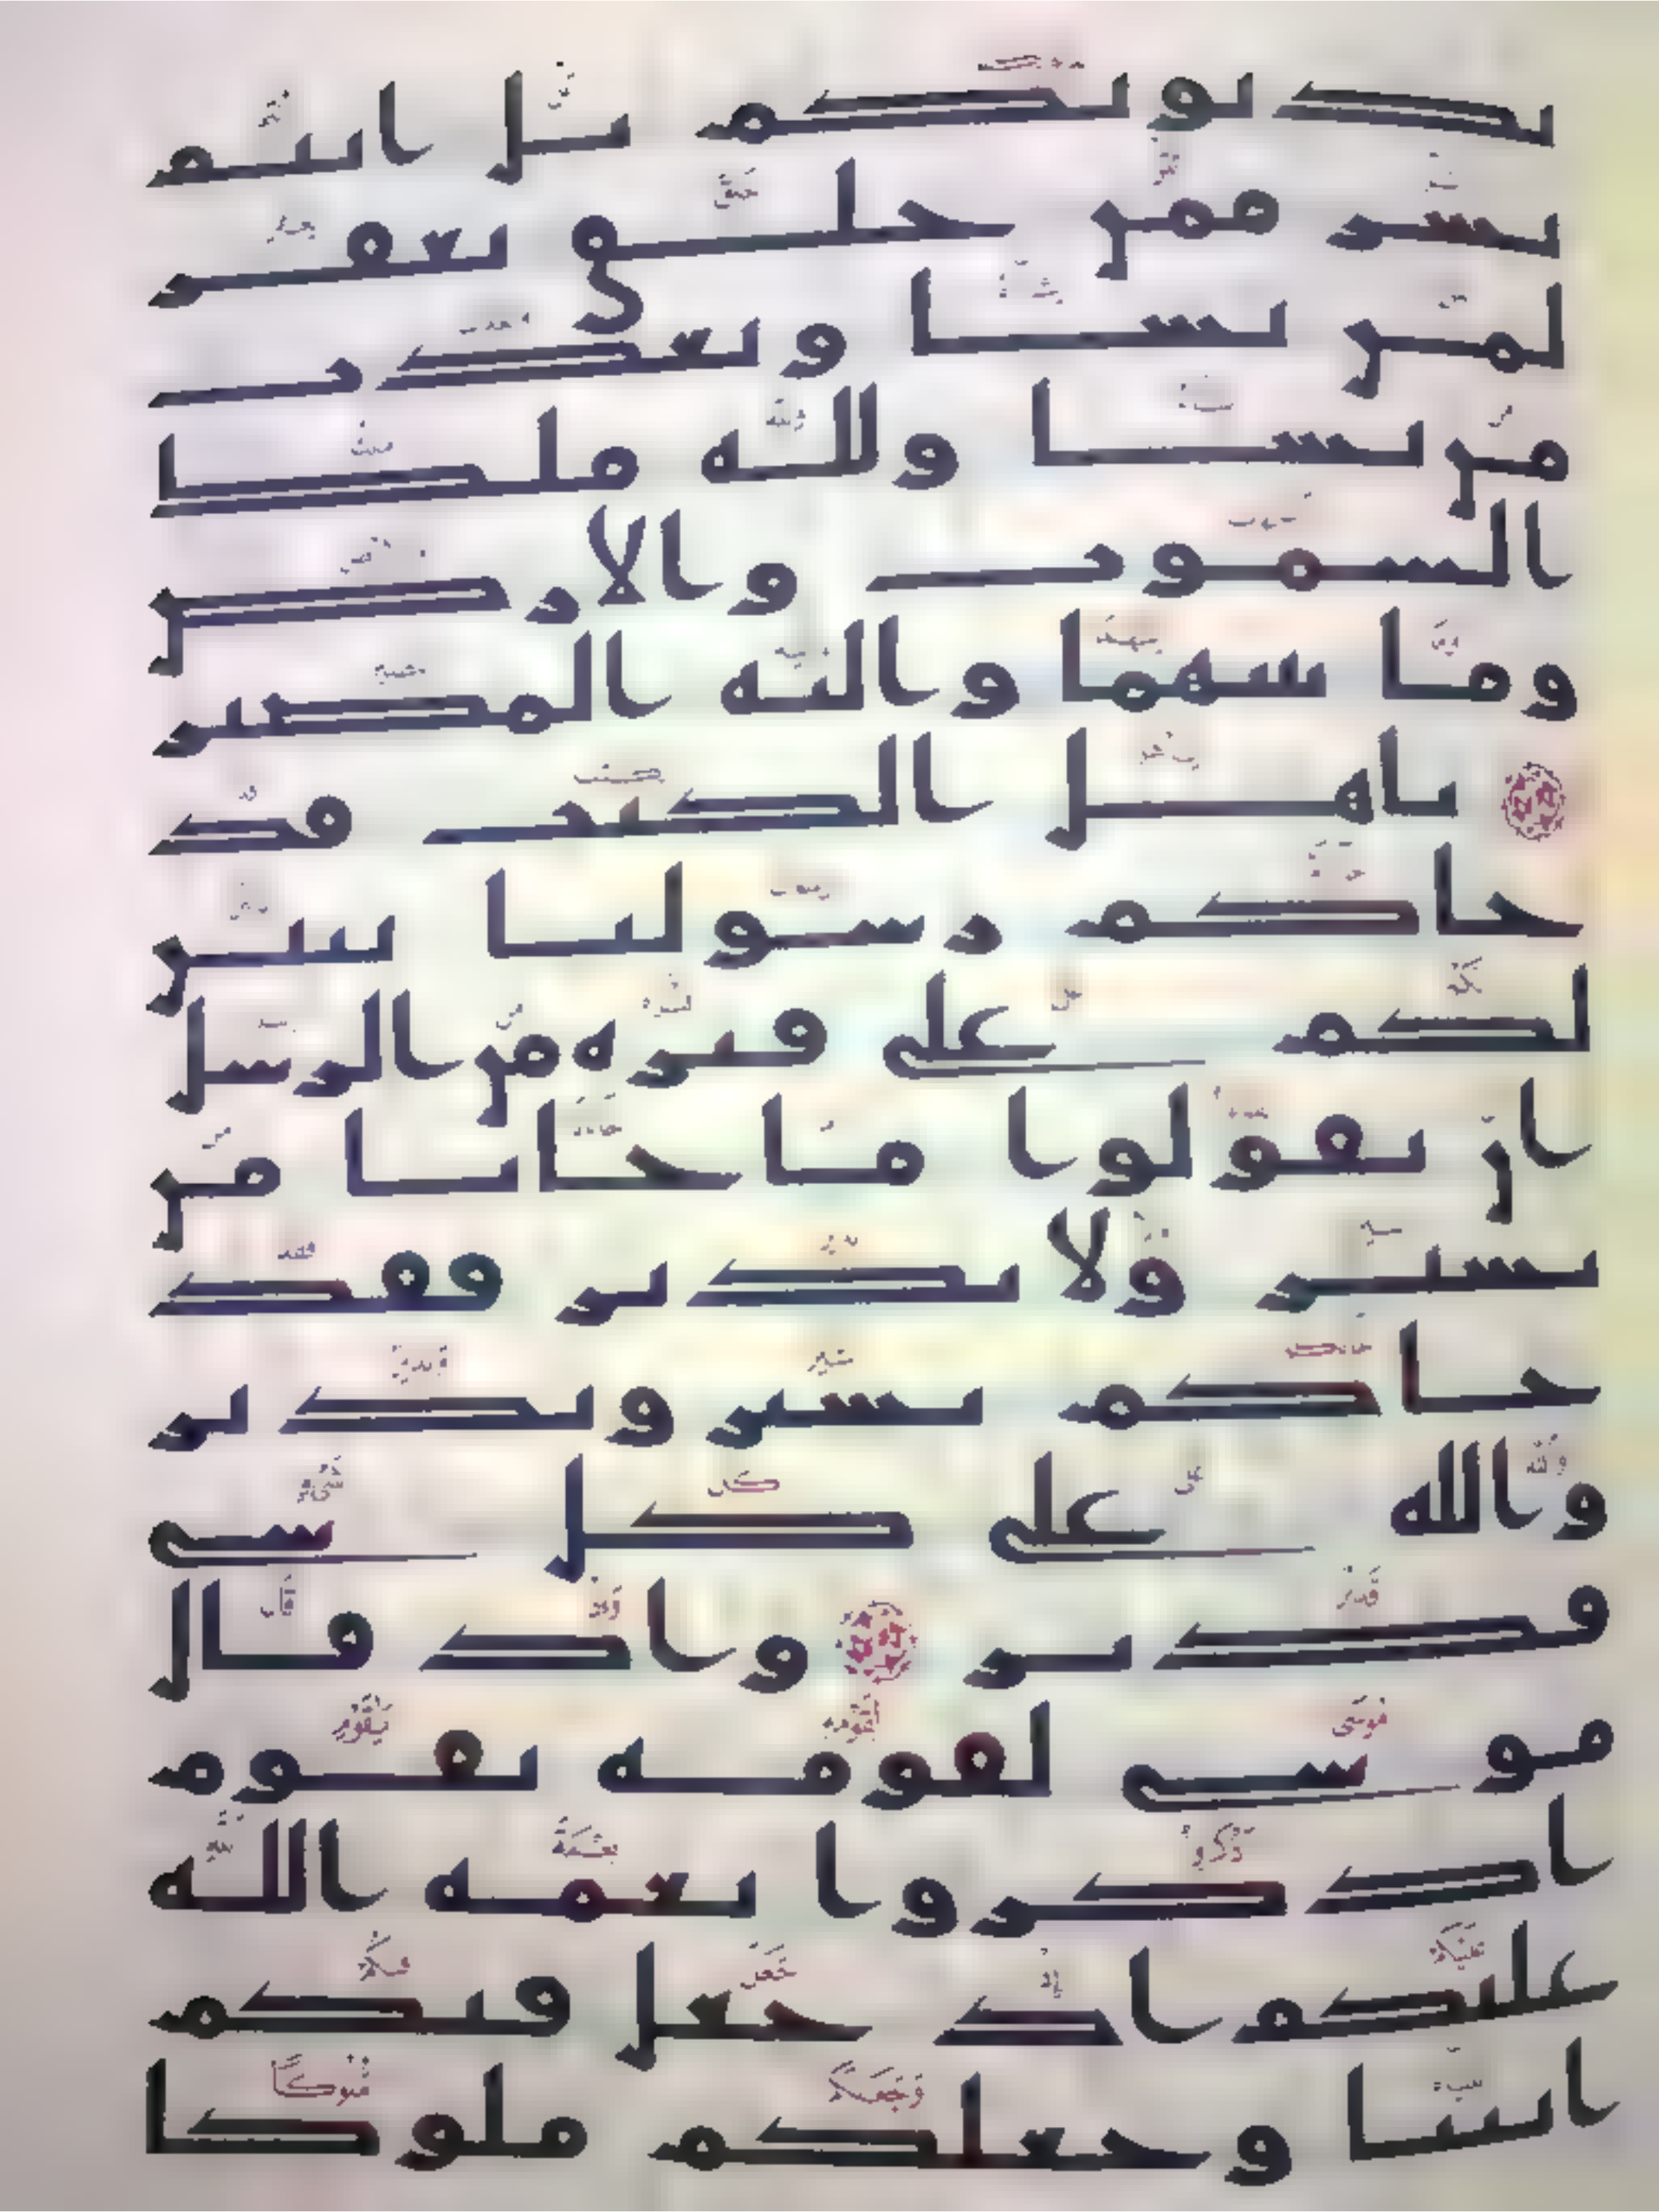 بذنوبكم بل انتم
بشر ممن خلق يغفر
لمن يشا ويعذب
من يشا ولله ملك
السموت والارض
وما بينهما واليه المصير
ياهل الكتب قد
جاكم رسولنا يبين
لكم على فتره من الرسل
ان تقولوا ما جانا من
بشير ولا نذير فقد
جاكم بشير ونذير
والله على كل شى
قدير واذ قال
موسى لقومه يقوم
اذكروا نعمه الله
عليكم اذ جعل فيكم
انبيا وجعلكم ملوكا